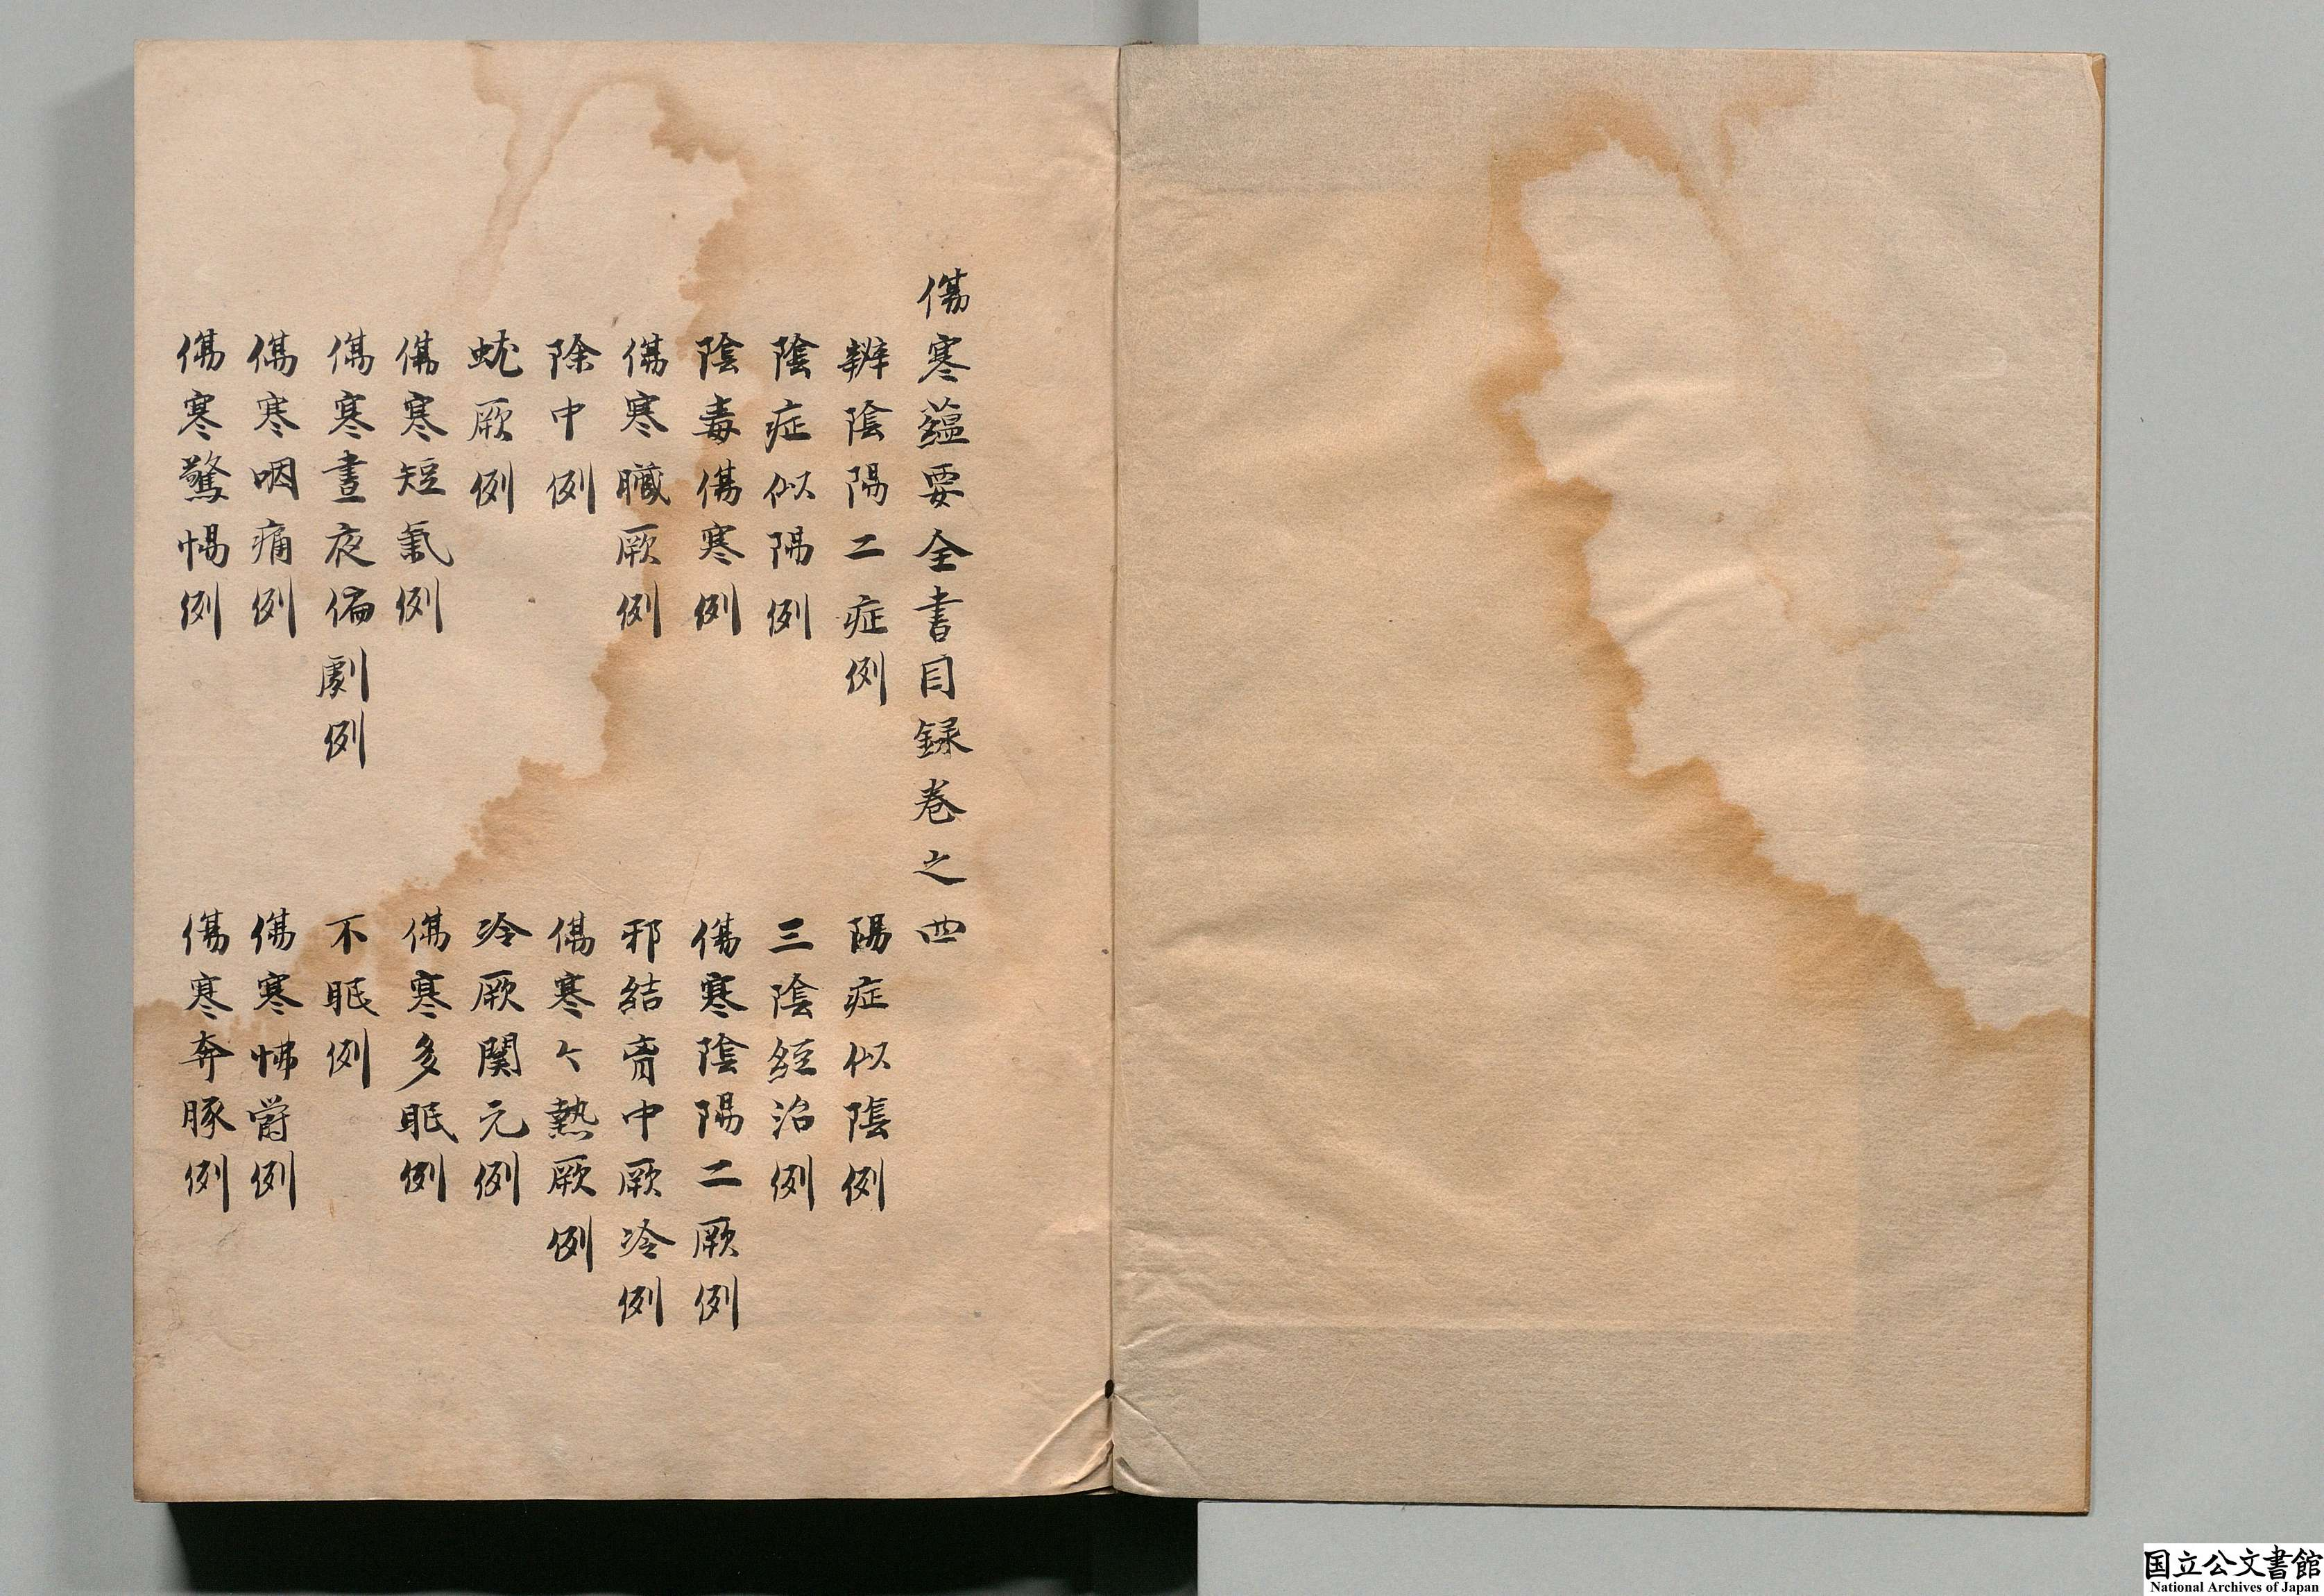 傷寒蘊要全書目録卷之四
辨陰陽二症例
陽症似陰例
陰症似陽例
三陰經治例
陰毒傷寒例
傷寒陰陽二厥例
傷寒臓厥例
邪結胷中厥冷例
除中例
傷寒々熱厥例
蚘厥例
冷厥関元例
傷寒短氣例
傷寒多眠例
傷寒晝夜偏劇例
不眠例
傷寒咽痛例
傷寒怫欝例
傷寒驚惕例
傷寒奔豚例
国立公文書館
National Archives of Japan